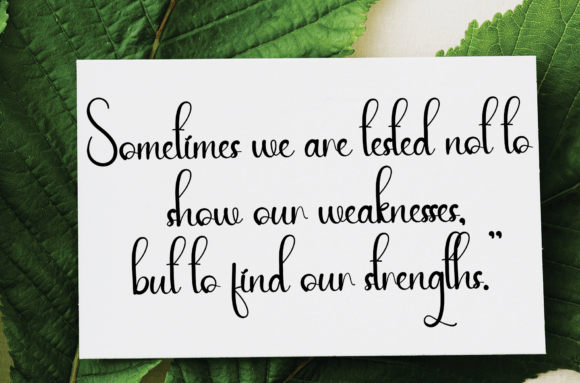 Sometimes we are tested not to
show our weaknesses,
but to find our strengths.”